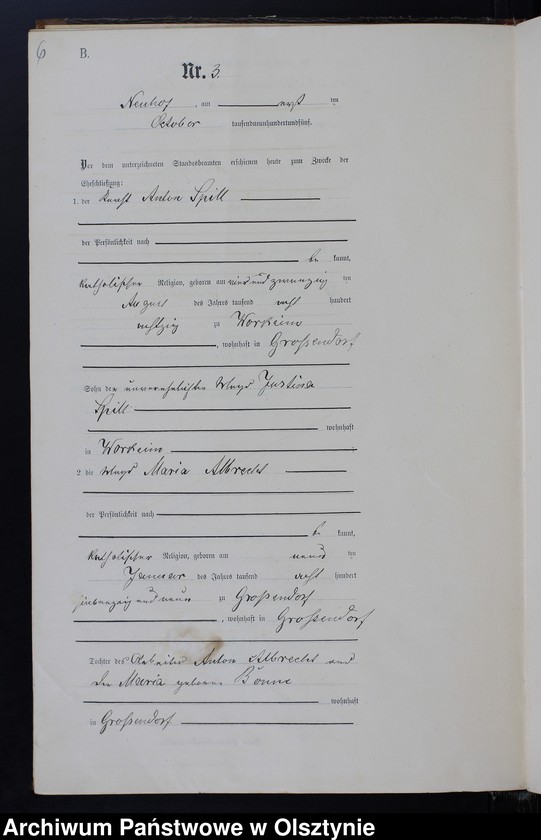 6
B.
Nr. 3.
Neuhof, am erst ten
October tausendneunhundertundfünf.
Vor dem unterzeichneten Standesbeamten erschienen heute zum Zwecke der
Eheschließung:
1. der Knecht Anton Spill
der Persönlichkeit nach
be kannt,
katholischer Religion, geboren am vierundzwanzig ten
August des Jahres tausend acht hundert
achtzig zu Workeim
, wohnhaft in Großendorf
Sohn der unverehelichten Magd Justina
Spill
wohnhaft
in Workeim
2 die Magd Maria Albrecht
der Persönlichkeit nach
be kannt,
katholischer Religion, geboren am neun ten
Januar des Jahres tausend acht hundert
siebenzig und neun zu Großendorf
, wohnhaft in Großendorf
Tochter des Arbeiter Anton Albrecht und
der Maria geborene
wohnhaft
in Großendorf
Archiwum Państwowe w Olsztynie